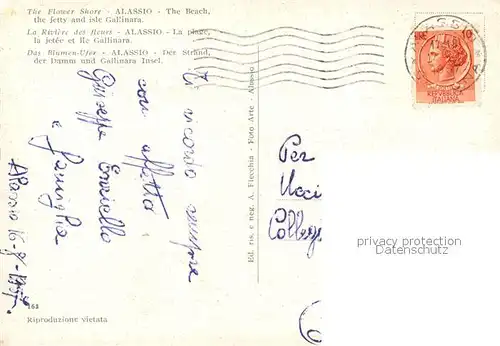 The Flower Shore - ALASSIO - The Beach,
the jetty and isle Gallinara.
La Rivière des fleurs - ALASSIO - La plage,
la jetée et île Gallinara.
Das Blumen-Ufer - ALASSIO - Der Strand,
der Damm und Gallinara Insel.
ALASSIO
LIRE 10
REPVBBLICA
ITALIANA
Ti ricordo sempre
con affetto
Giuseppe
e famiglia
Alassio 16-8-
Ed. ris. e neg. A. Flecchia - Foto Arte - Alassio
Per
Ucci
Colleg
privacy protection
Datenschutz
161
Riproduzione vietata